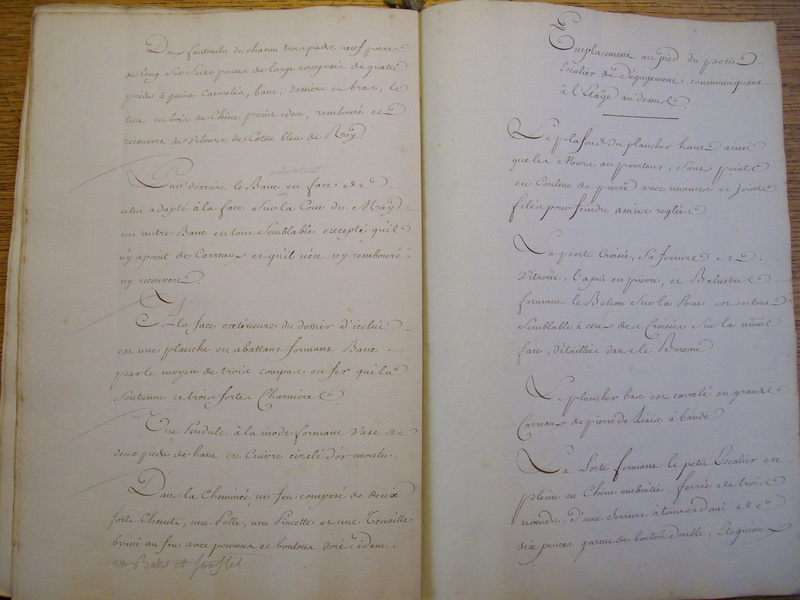 Deux fauteuils de chacun trois pieds neuf pouces
de long sur seize pouces de large composés de quatre
pieds à gaines cannelés, banc, dossiers et bras, le
tout en bois de Chêne peint idem, rembouré et
recouvert de velours de Coton bleu de Roy.
Par derriere le Banc en face de
celui adapté à la face sur la Cour du May
un autre Banc en tous semblable excepté qu'il
n'y a point de Carreaux et qu'il n'en n'y rembouré
ny recouvert.
A la face extérieure du dossier d'icelui
est une planche en abattant formant Banc
par le moyen de trois compas en fer qui la
soutienne et trois fortes Charnieres &.
Une Pendule à la mode formant Vase de
deux pieds de haut en Cuivre cizelé d'or moulu.
Dans la Cheminée, un feu composé de deux
forts Chenets, une Pelle, une Pincette et une Tenaille
bruni au feu avec pommes et boutons doré idem.
Ballet et soufflet
Emplacement au pied du petit
Escalier de dégagement communiquant
à l'Etage au dessus.
Le plafond du plancher haut ainsi
que les Murs au pourtour, sont peints
en Couleur de pierre avec nuances et joints
filés pour feindre assises reglées.
La porte Croisée, sa ferrure et
Vitrerie, l'apui en pierre, et Balustre
formant le Balcon sur la Rue est en tout
semblable à ceux des Croisées sur la même
face, détaillées dans le Bureau.
Le plancher bas est carrelé en grands
Carreaux de pierre de Liais à bande.
La Porte fermant le petit Escalier est
pleine en Chêne emboitée. ferrée de trois
d'une serrure à tour et demi de
six pouces garnie de bouton double,